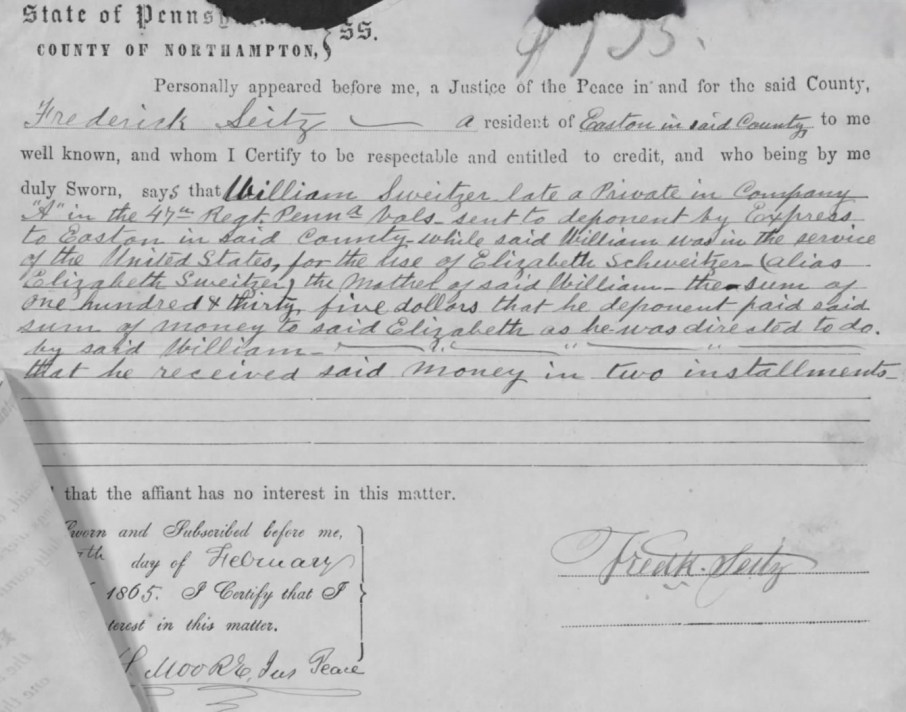 State of Pennsy
SS.
COUNTY OF NORTHAMPTON,
Personally appeared before me, a Justice of the Peace in and for the said County,
Frederick Seitz a resident of Easton in said County, to me
well known, and whom I Certify to be respectable and entitled to credit, and who being by me
duly Sworn, says that William Sweitzer late a Private in Company
"A" in the 47th Regt Penna Vols sent to deponent by Express
to Easton in said County while said William was in the service
of the United States, for the use of Elizabeth Schweitzer (alias
Elizabeth Sweitzer) the Mother of said William - the sum of
one hundred & thirty five dollars that he deponent paid said
sum of money to said Elizabeth as he was directed to do.
by said William
that he received said money in two installments
that the affiant has no interest in this matter.
Sworn and Subscribed before me,
th day of February
1865. I Certify that I
terest in this matter.
Moore, Jus Peace
Fredk. Seitz